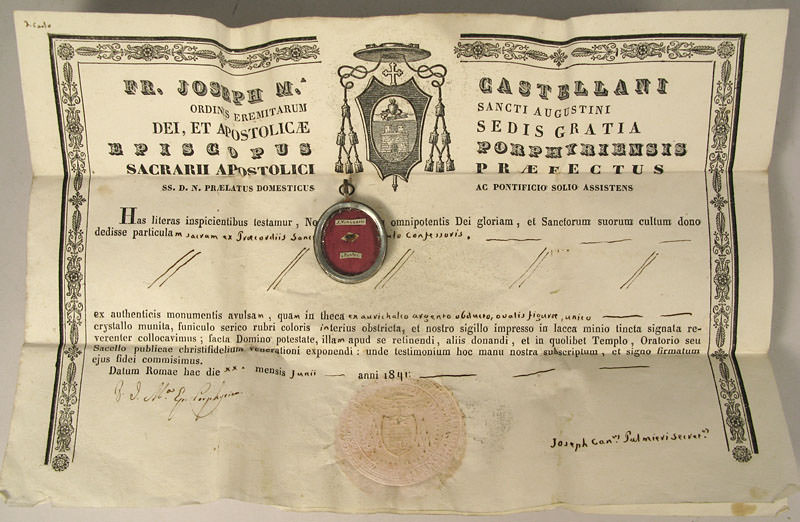 FR. JOSEPH M.ᴬ CASTELLANI
ORDINIS EREMITARUM SANCTI AUGUSTINI
DEI, ET APOSTOLICÆ SEDIS GRATIA
EPISCOPUS PORPHYRIENSIS
SACRARII APOSTOLICI PRÆFECTUS
SS. D. N. PRÆLATUS DOMESTICUS AC PONTIFICIO SOLIO ASSISTENS
Has literas inspicientibus testamur, omnipotentis Dei gloriam, et Sanctorum suorum cultum dono
dedisse particulam sacram ex Præcordiis Confessoris,
ex authenticis monumentis avulsam, quam in theca ex aurichalco argento obducto, ovalis figuræ, unico
crystallo munita, funiculo serico rubri coloris interius obstricta, et nostro sigillo impresso in lacca minio tincta signata re-
verenter collocavimus; facta Domino potestate, illam apud se retinendi, aliis donandi, et in quolibet Templo, Oratorio seu
Sacello publicae christifidelium venerationi exponendi: unde testimonium hoc manu nostra subscriptum, et signo firmatum
ejus fidei commisimus.
Datum Romae hac die xx. mensis Junii anni 1841
Joseph Can.ᵘˢ Palmieri Secret.ᵘˢ